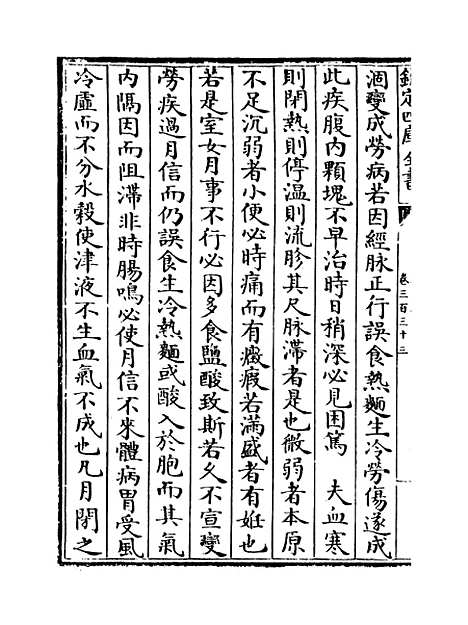 欽定四庫全書
卷三百三十三
涸變成勞病若因經脉正行誤食熱麵生冷勞傷遂成
此疾腹內顆塊不早治時日稍深必見困篤　夫血寒
則閉熱則停温則流胗其尺脉滯者是也微弱者本原
不足沉弱者小便必時痛而有癥瘕若滿盛者有妊也
若是室女月事不行必因多食鹽酸致斯若久不宣變
勞疾過月信而仍誤食生冷熱麵或酸入於胞而其氣
內隔因而阻滯非時腸鳴必使月信不來體病胃受風
冷虛而不分水榖使津液不生血氣不成也凡月閉之